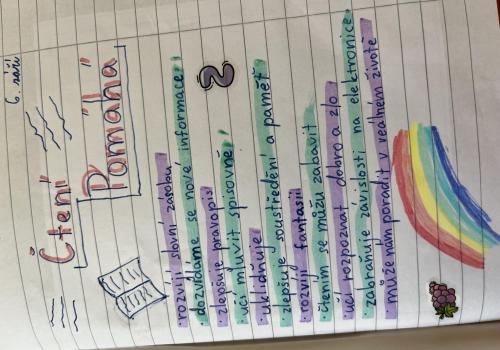 6. září
Čtení
Pomáhá
• rozvíjí slovní zásobu
• dozvídáme se nové informace!
• zlepšuje pravopis
• učí mluvit spisovně!
• uklidňuje
• zlepšuje soustředění a paměť
• rozvíjí fantasii
• čtením se můžu zabavit
• učí rozpoznat dobro a zlo
• zabraňuje závislosti na elektronice
• může nám poradit v reálném životě
2